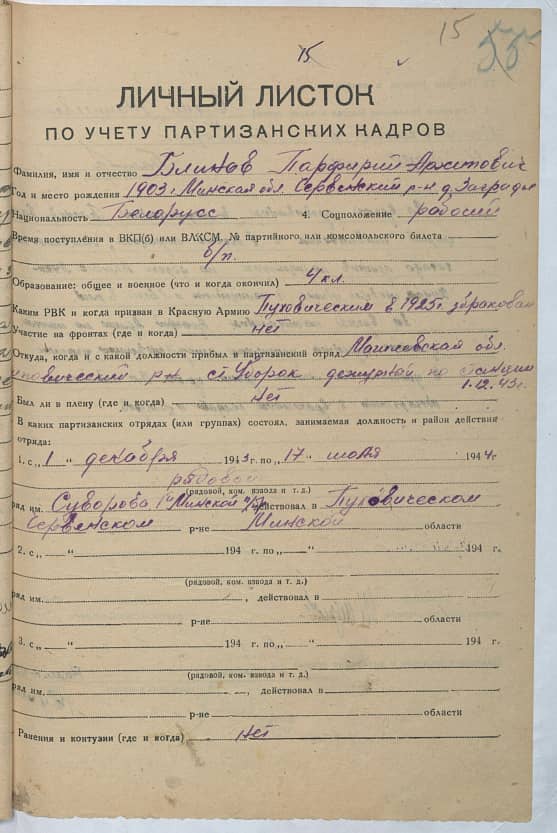 15
15 55
ЛИЧНЫЙ ЛИСТОК
ПО УЧЕТУ ПАРТИЗАНСКИХ КАДРОВ
Фамилия, имя и отчество Блинов Парфирий
Год и место рождения 1903 г. Минская обл. Червенский р-н д.
Национальность Белорусс 4. Соцположение рабочий
Время поступления в ВКП(б) или ВЛКСМ, № партийного или комсомольского билета
б/п.
Образование: общее и военное (что и когда окончил) 4 кл.
Каким РВК и когда призван в Красную Армию Пуховическим в 1925 г. збракован
Участие на фронтах (где и когда) нет
Откуда, когда и с какой должности прибыл в партизанский отряд обл.
р-н ст. дежурный по станции
1.12.43 г.
Был ли в плену (где и когда) Нет
В каких партизанских отрядах (или группах) состоял, занимаемая должность и район действия
отряда:
1. с „1 “ декабря 1943 г. по „17 “ июля 1944 г.
рядовой
(рядовой, ком. взвода и т. д.)
ряд им. Суворова 1й Минской действовал в Пуховическом
Червенском р-не Минской области
2. с „ “ 194 г. по „ “ 194 г.
(рядовой, ком. взвода и т. д.)
ряд им. , действовал в
р-не области
3. с „ “ 194 г. по „ “ 194 г.
(рядовой, ком. взвода и т. д.)
ряд им. , действовал в
р-не области
Ранения и контузии (где и когда) нет